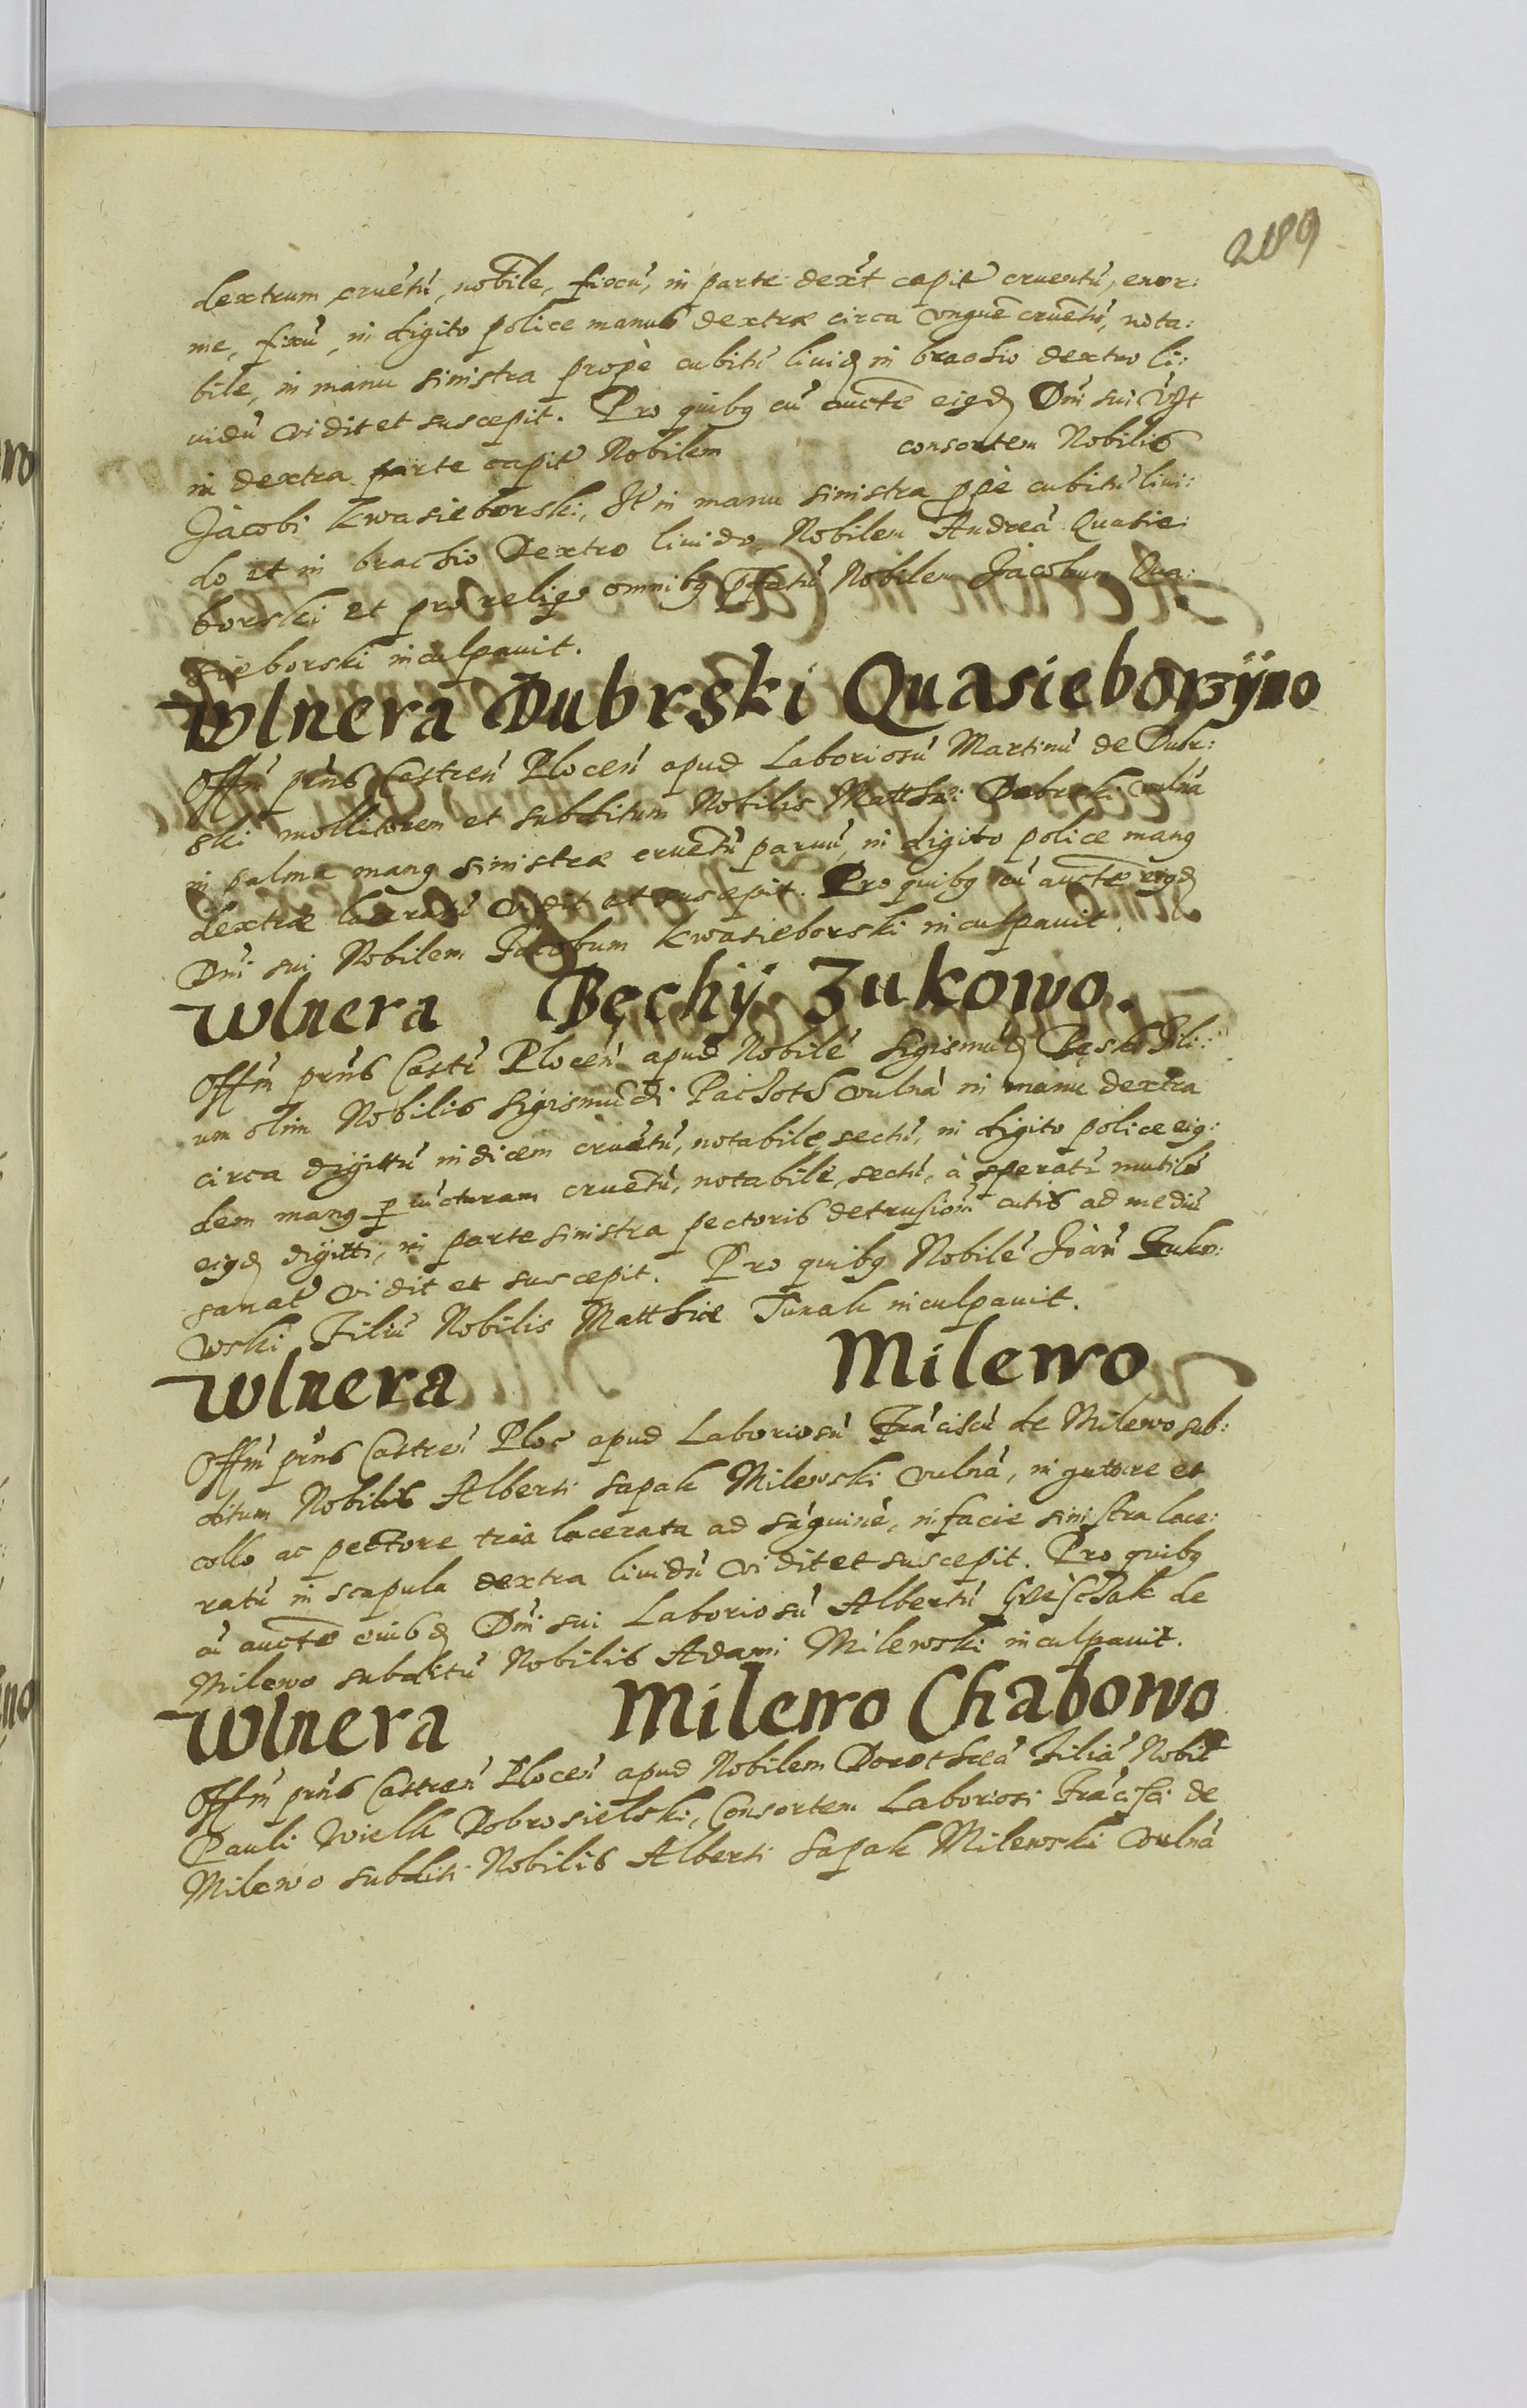 2189
dextrum cruētū, nobile, fixū, in parte dext capit cruentū, enor:
me, fixū, in digito police manus dextræ circa unguē cruētū, nota:
bile, in manu sinistra propè cubitū livid in brachio dextro li:
uidū vidit et suscepit. Pro quibꝫ cū aucte eiꝰd Dni sui
in dextra parte capit Nobilem consortem Nobilis
Jacobi Kwasieborski, It in manu sinistra ppè cubitū liui:
do et in brachio Dextro liuido, Nobilem Andreā Quasie:
borski et pro reliqꝰ omnibꝫ pfatū Nobilem Jacobum Qua:
sieborski inculpauit.
Wlnera Dubrski Quasieborzÿno
Offm prns Castren Plocen apud Laboriosū Martinū de Dubr:
ski mollitorem et subditum Nobilis Matthæi Dobrski vulna
in palma manꝰ sinistræ cruētū paruū, in digito police manꝰ
dextræ laceratū vidit et suscepit. Pro quibꝫ cū aucte eiꝰd
Dni sui Nobilem Jacobum Kwasieborski inculpauit.
Wlnera Bęchÿ Zukowo.
Offm prns Castr Plocen apud Nobilē Sigismūd Bęsk fili:
um olim Nobilis Sigismūdi Pachots vulna in manu dextra
circa digittū indicem cruētū, notabile, sectū, in digito police eiꝰ:
dem manꝰ ꝑ iūcturam cruētū, notabile, sectū, à speratū mutilō
eiꝰd digitti, in parte sinistra pectoris detrusionē cutis ad mediū
sanat vidit et suscepit. Pro quibꝫ Nobilē Joān Zuko:
wski Filiū Nobilis Matthiæ Turak inculpauit.
Wlnera Milewo
Offm prns Castren Ploc apud Laboriosū Frāciscū de Milewo sub:
ditum Nobilis Alberti Sapak Milewski vulna, in gutture et
collo ac pectore tria lacerata ad sāguinē, in facie sinistra lace:
ratū in scapula dextra liuidū vidit et suscepit. Pro quibꝫ
cū aucte euisd Dni sui Laboriosū Albertū de
Milewo subditū Nobilis Adami Milewski inculpauit.
Wlnera Milewo Chabowo
Offm prns Castren Plocen apud Nobilem Dorotheā Filiā Nobil
Pauli Wielk Dobrosielski, Consortem Laboriosi Frācisci de
Milewo subditi Nobilis Alberti Sapak Milewski vulna